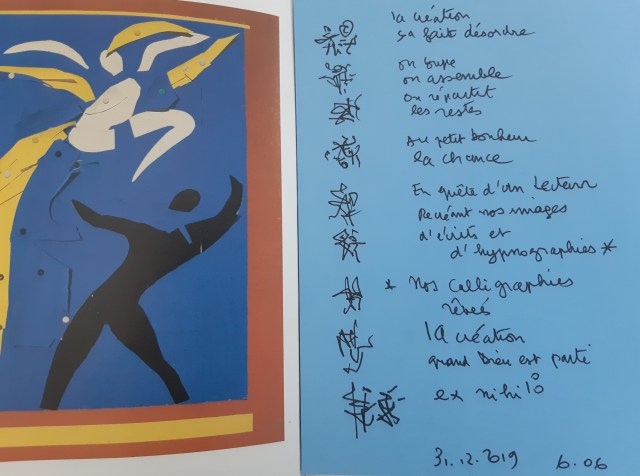 la création
ça fait désordre
on coupe
on assemble
on répartit
les restes
Au petit bonheur
la chance
En quête d'un Lecteur
Recréant nos images
d'écrits et
d'hypnographies *
* Nos calligraphies
rêvées
la création
grand Dieu est parti
ex nihilo
31.12.2019 6.06